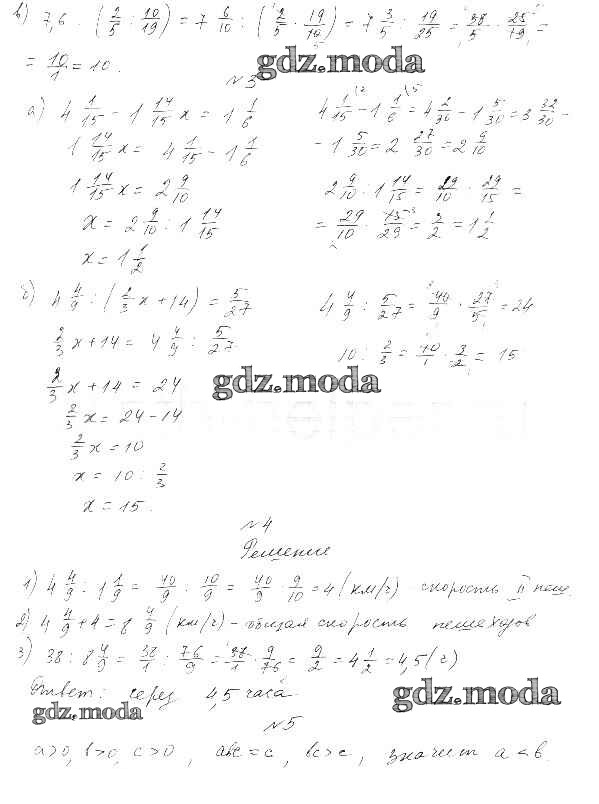 в) 7,6 : (2/5 : 10/19) = 7 6/10 : (2/5 · 19/10) = 7 3/5 : 19/25 = 38/5 · 25/19 =
= 10/1 = 10.
gdz.moda
№3
а) 4 1/15 - 1 14/15 x = 1 1/6
1 14/15 x = 4 1/15 - 1 1/6
1 14/15 x = 2 9/10
x = 2 9/10 : 1 14/15
x = 1 1/2
4 1/15 - 1 1/6 = 4 2/30 - 1 5/30 = 3 32/30 -
- 1 5/30 = 2 27/30 = 2 9/10
2 9/10 : 1 14/15 = 29/10 : 29/15 =
= 29/10 · 15/29 = 3/2 = 1 1/2
б) 4 4/9 : (2/3 x + 14) = 5/27
2/3 x + 14 = 4 4/9 : 5/27
2/3 x + 14 = 24
2/3 x = 24 - 14
2/3 x = 10
x = 10 : 2/3
x = 15.
4 4/9 : 5/27 = 40/9 · 27/5 = 24
10 : 2/3 = 10/1 · 3/2 = 15
gdz.moda
№4
Решение
1) 4 4/9 : 1 1/9 = 40/9 : 10/9 = 40/9 · 9/10 = 4 (км/ч) скорость II пеш.
2) 4 4/9 + 4 = 8 4/9 (км/ч) - общая скорость пешеходов
3) 38 : 8 4/9 = 38/1 : 76/9 = 38/1 · 9/76 = 9/2 = 4 1/2 = 4,5 (ч)
Ответ: через 4,5 часа.
gdz.moda
gdz.moda
№5
a>0, b>0, c>0, abc = c, bc > c, значит a < b.